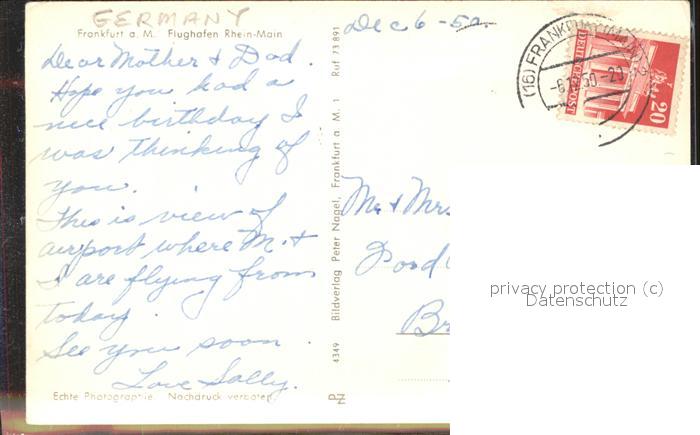 GERMANY
Frankfurt a. M. Flughafen Rhein-Main
Dear Mother & Dad.
Hope you had a
nice birthday I
was thinking of
you.
This is view of
airport where M. &
I are flying from
today.
See you soon.
Love Sally.
Echte Photographie Nachdruck verboten
4349 Bildverlag Peter Nagel, Frankfurt a. M. 1 Ruf 73891
PN
Dec 6-50
(16) FRANKFURT
-6.12.50.-20
DEUTSCHE POST
20
Mr & Mrs
Br
privacy protection (c)
Datenschutz